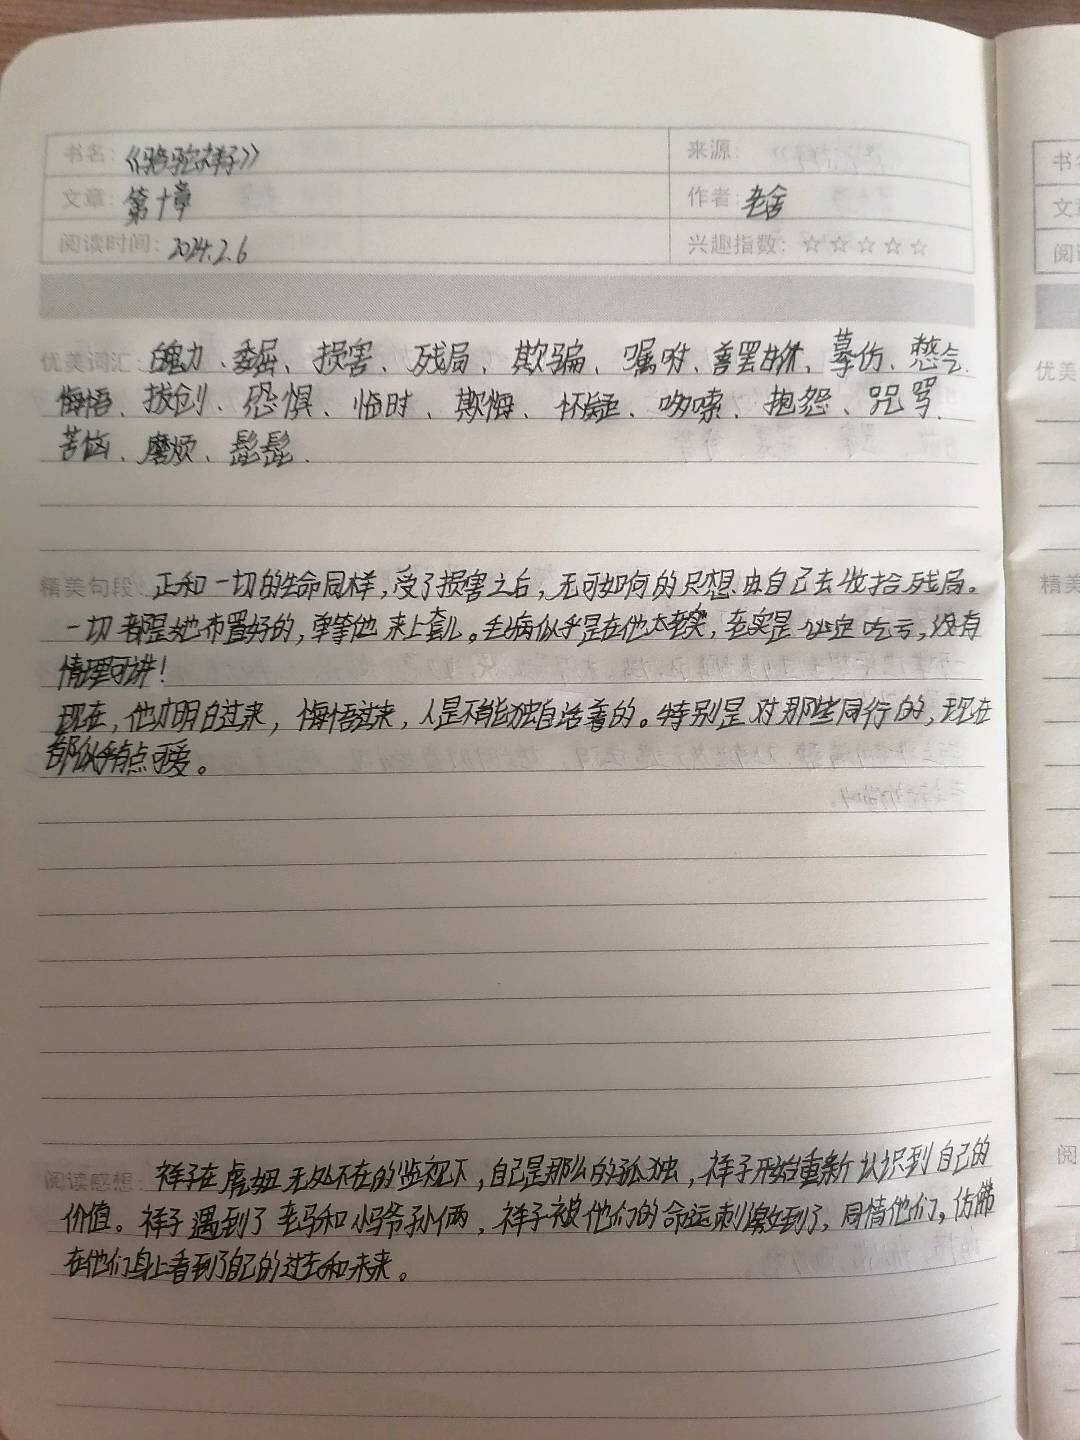 书名：《骆驼祥子》
来源：
文章：第十章
作者：老舍
阅读时间：2024.2.6
兴趣指数：☆☆☆☆☆
优美词汇：魄力、委屈、损害、残局、欺骗、嘱咐、善罢甘休、摹仿、憋气、
悔悟、拔创、恐惧、临时、欺侮、怀疑、哆嗦、抱怨、咒骂、
苦恼、磨烦、髭髭.
精美句段：正和一切的生命同样，受了损害之后，无可如何的只想由自己去收拾残局。
一切都是她布置好的，单等他来上套儿。毛病似乎是在他太老实，老实是必定吃亏，没有
情理可讲！
现在，他才明白过来，悔悟过来，人是不能独自活着的。特别是对那些同行的，现在
都似乎有点可爱。
阅读感想：祥子在虎妞无处不在的监视下，自己是那么的孤独，祥子开始重新认识到自己的
价值。祥子遇到了老马和小马爷孙俩，祥子被他们的命运刺激到了，同情他们，仿佛
在他们身上看到了自己的过去和未来。
书
文章
阅
优美
精美
阅